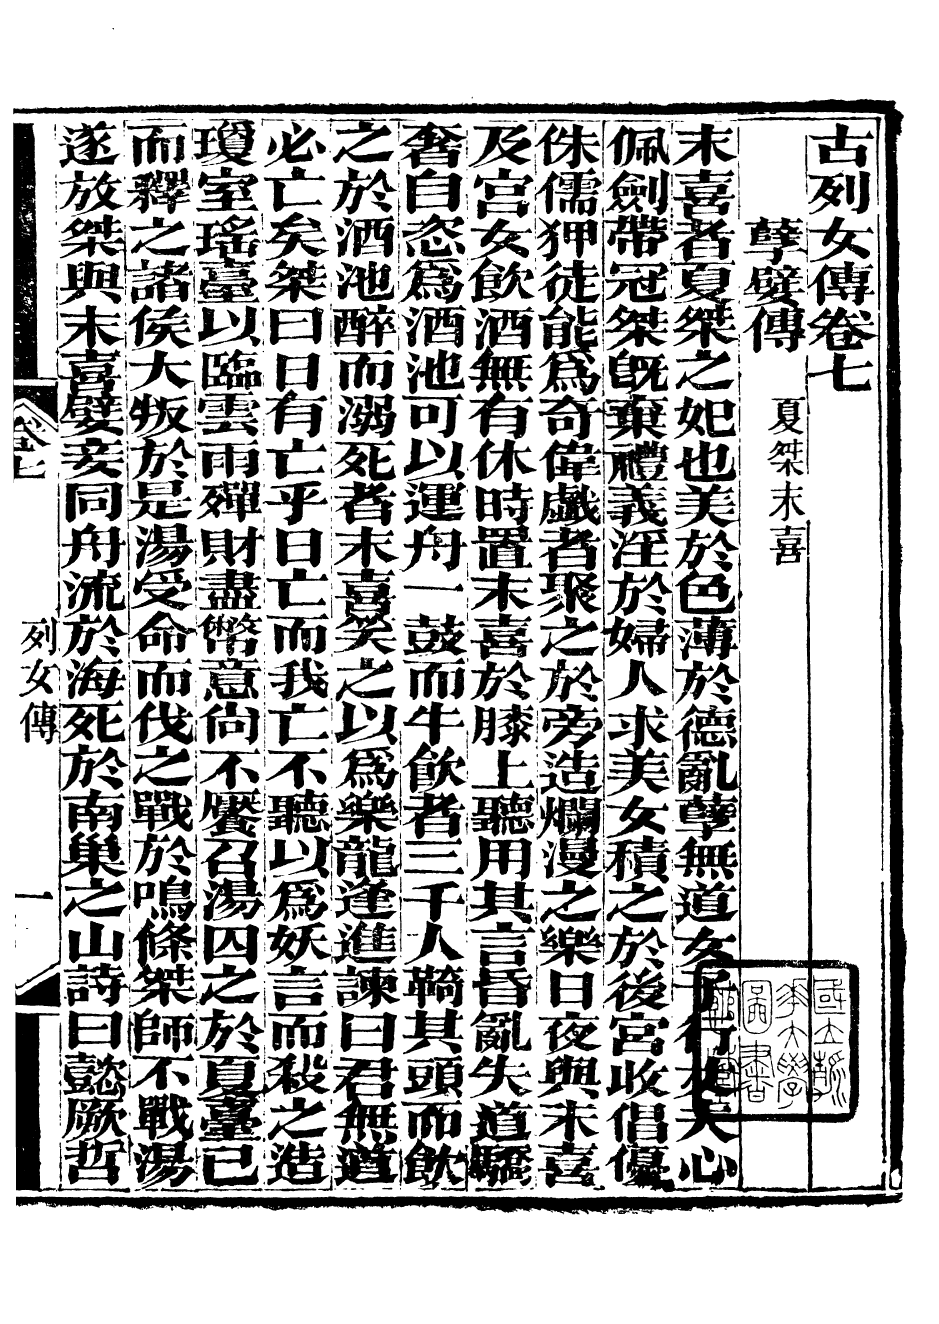 古列女傳卷七
孽嬖傳
夏桀末喜
末喜者夏桀之妃也美於色薄於德亂孽無道女子行丈夫心
佩劍帶冠桀旣棄禮義淫於婦人求美女積之於後宮收倡優
侏儒狎徒能爲奇偉戲者聚之於旁造爛漫之樂日夜與末喜
及宮女飲酒無有休時置末喜於膝上聽用其言昏亂失道驕
奢自恣爲酒池可以運舟一鼓而牛飲者三千人鞿其頭而飲
之於酒池醉而溺死者末喜笑之以爲樂龍逢進諫曰君無道
必亡矣桀曰日有亡乎日亡而我亡不聽以爲妖言而殺之造
瓊室瑤臺以臨雲雨殫財盡幣意尙不饜召湯囚之於夏臺已
而釋之諸侯大叛於是湯受命而伐之戰於鳴條桀師不戰湯
遂放桀與末喜嬖妾同舟流於海死於南巢之山詩曰懿厥哲
卷七
列女傳
一
國立北京大學
圖書